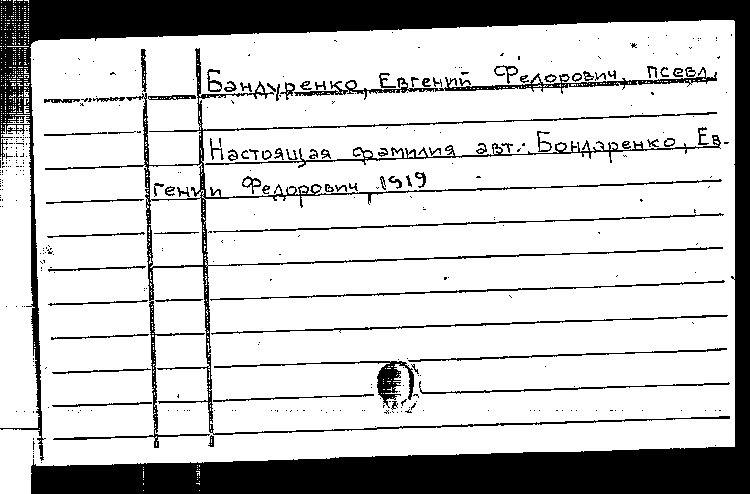 Бандуренко, Евгений Федорович, псевд.
Настоящая фамилия авт.: Бондаренко, Ев-
гений Федорович, 1919